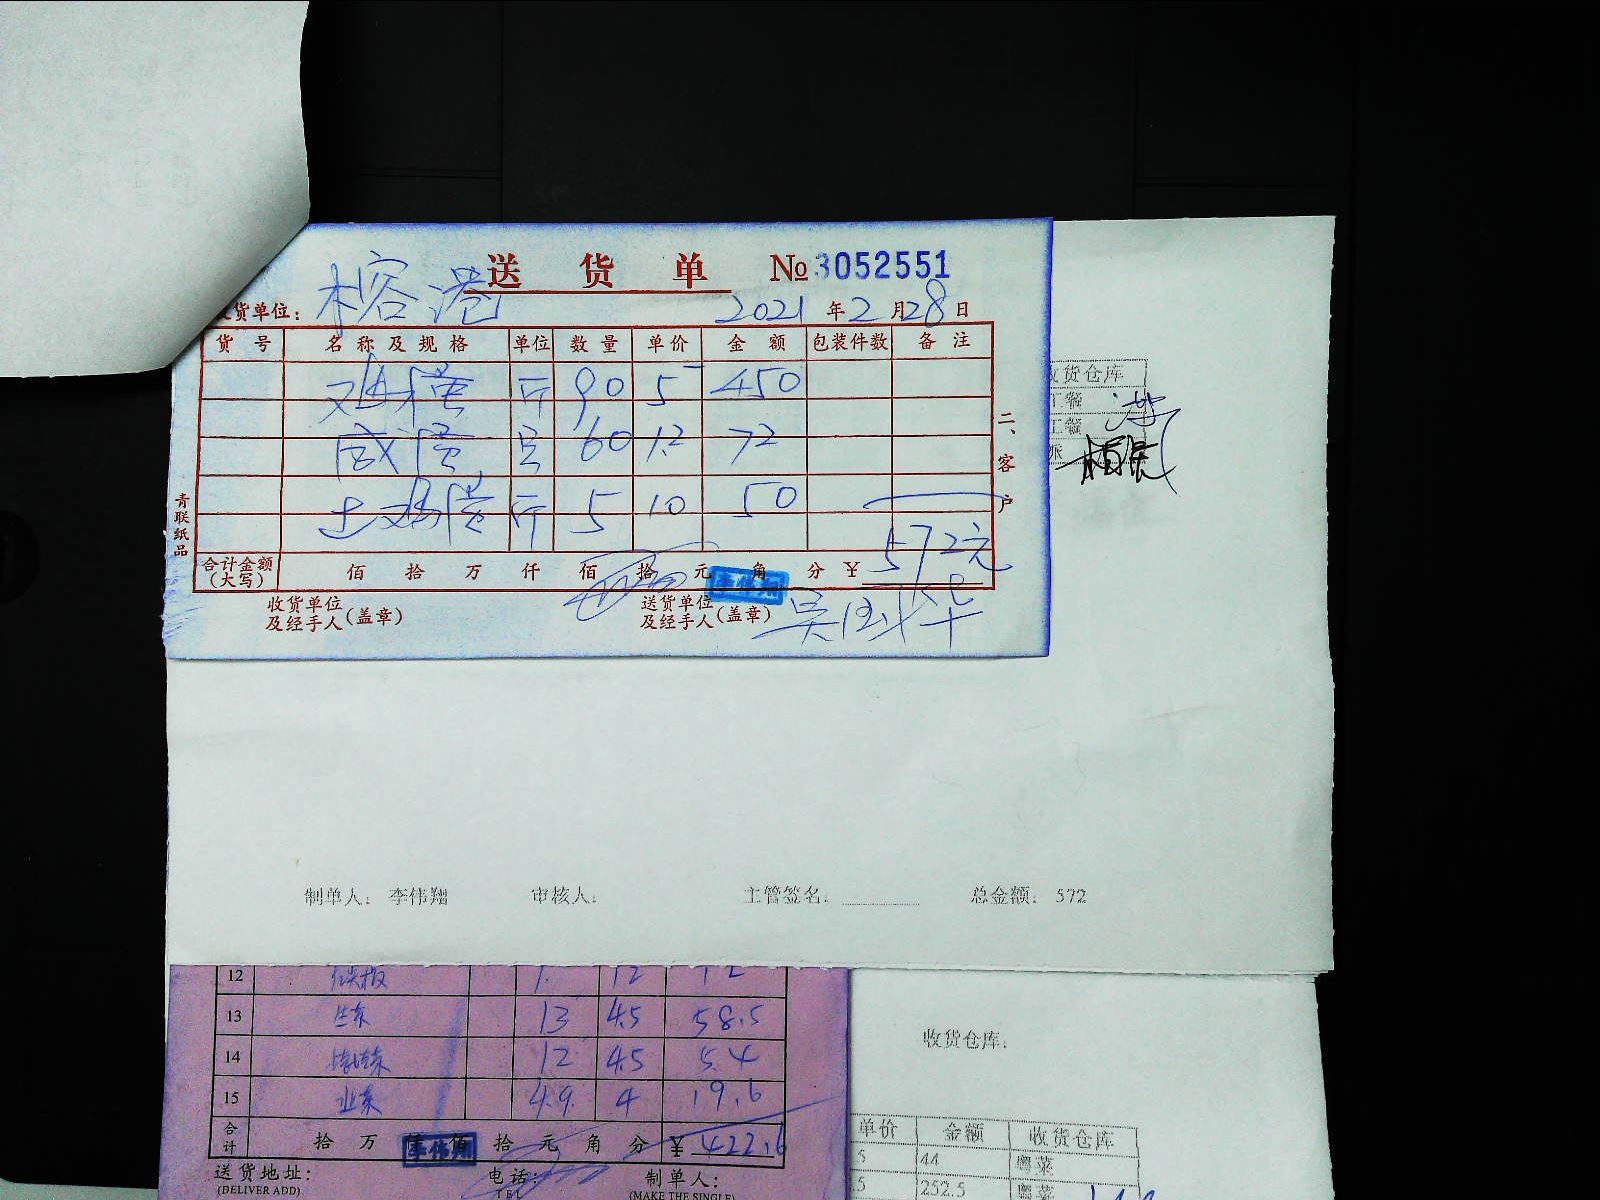 送 货 单 №3052551
货单位： 榕港 2021 年 2 月 28 日
货 号 名 称 及 规 格 单位 数 量 单 价 金 额 包装件数 备 注
鸡蛋 斤 90 5 450
咸蛋 只 60 1.2 72
土鸡蛋 斤 5 10 50
合计金额（大写） 佰 拾 万 仟 佰 拾 元 角 分 ¥ 572元
收货单位及经手人（盖章） 送货单位及经手人（盖章） 吴国华
李伟翔
青联纸品
二、客户
收货仓库
工餐
工餐
派
制单人： 李伟翔 审核人： 主管签名： 总金额： 572
12 1. 12 12
13 生菜 13 4.5 58.5
14 12 4.5 5.4
15 4.9 4 19.6
合计 拾 万 仟 佰 拾 元 角 分 ¥ 422.6
李伟翔
送货地址： 电话： 制单人：
(DELIVER ADD) TEL (MAKE THE SINGLE)
收货仓库：
单价 金额 收货仓库
5 44 粤菜
5 252.5 粤菜